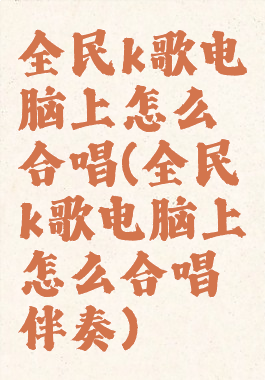 全民k歌电
脑上怎么
合唱(全民
k歌电脑上
怎么合唱
伴奏)